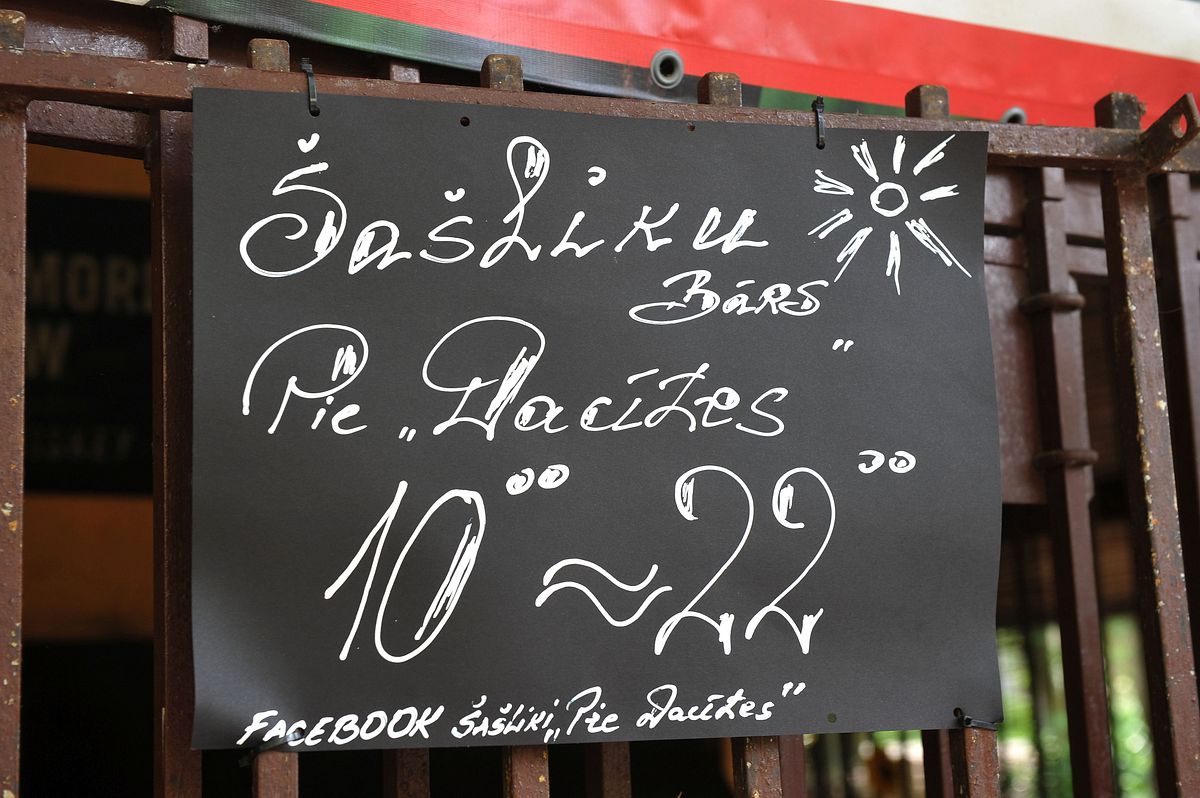 Šašliku
Bārs
Pie „Dacītes”
10⁰⁰ ~ 22⁰⁰
FACEBOOK šašliki „Pie Dacītes”